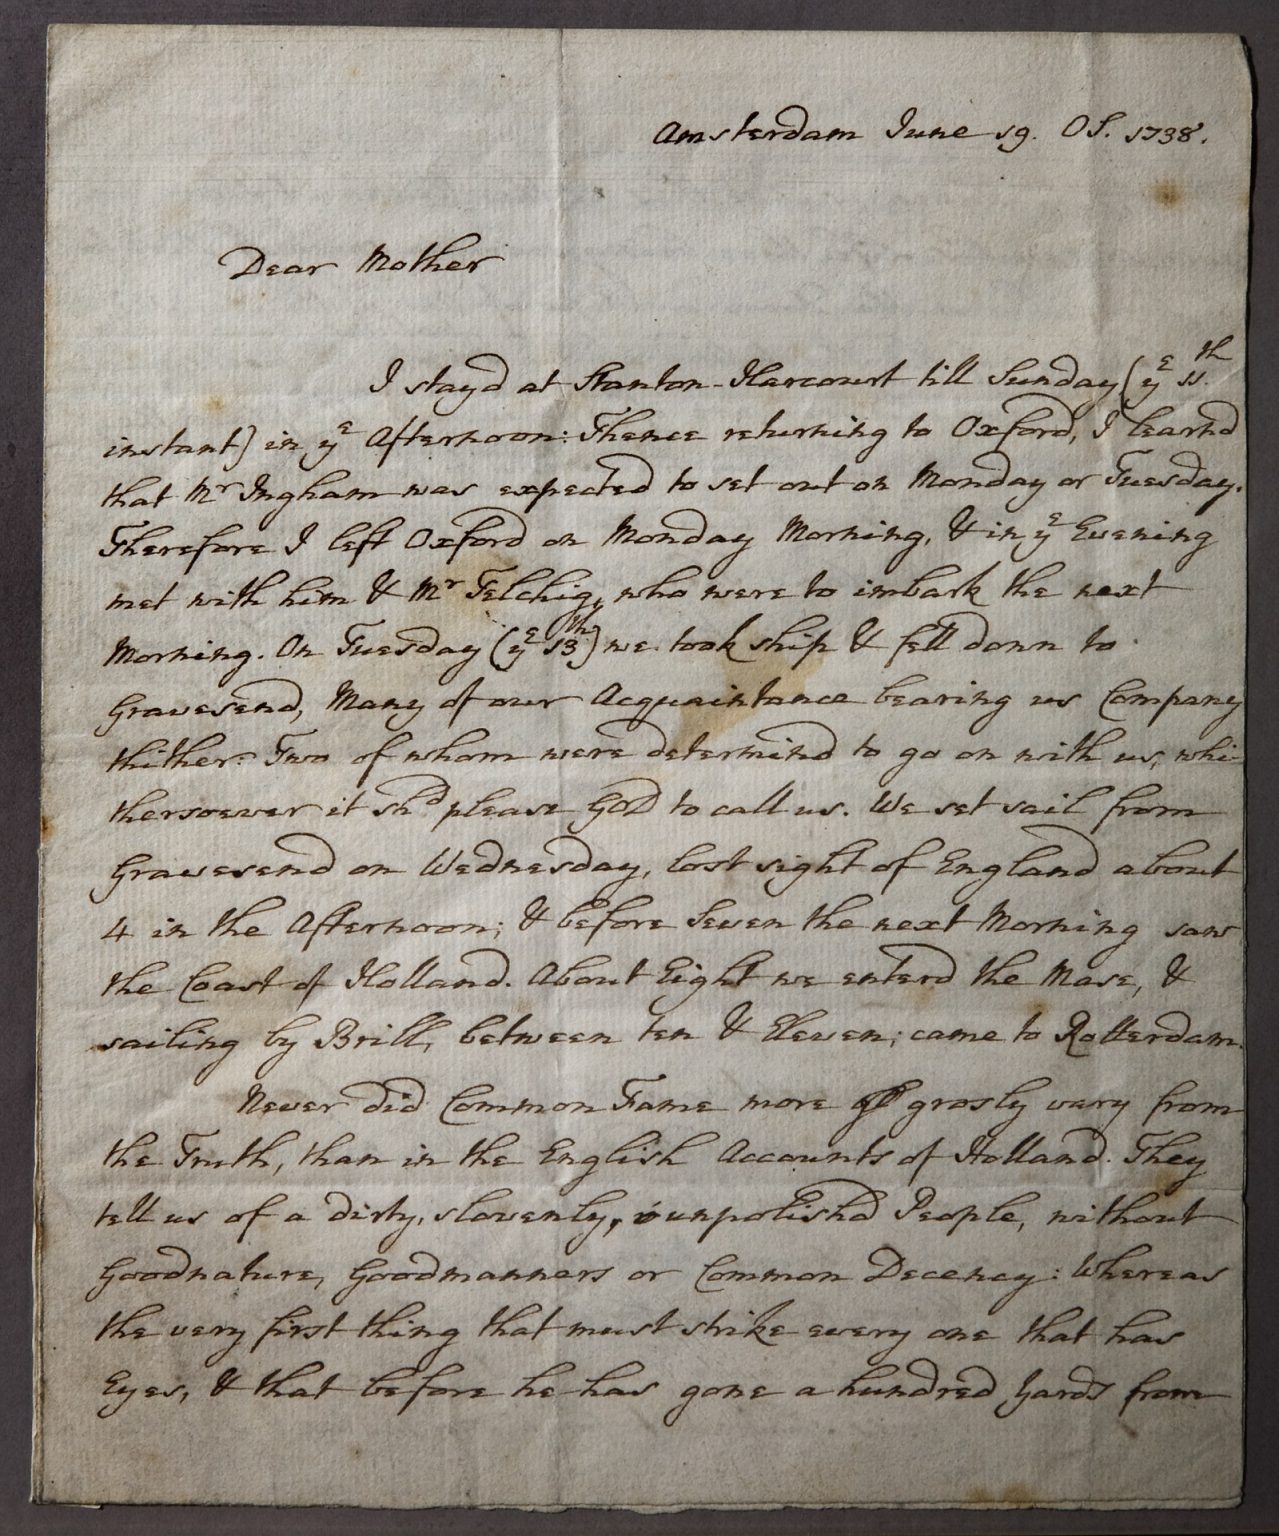 Amsterdam June 19. OS. 1738.
Dear Mother
I stayd at Stanton-Harcourt till Sunday (ye 11th
instant) in ye Afternoon: Thence returning to Oxford, I learnd
that Mr Ingham was expected to set out on Monday or Tuesday.
Therefore I left Oxford on Monday Morning, & in ye Evening
met with him & Mr Telchig, who were to imbark the next
Morning. On Tuesday (ye 13th) we took ship & fell down to
Gravesend, Many of our Acquaintance bearing us Company
thither: Two of whom were determind to go on with us, whi-
thersoever it shd please GOD to call us. We set sail from
Gravesend on Wednesday, lost sight of England about
4 in the Afternoon; & before Seven the next Morning saw
the Coast of Holland. About Eight we enterd the Mase, &
sailing by Brill, between ten & Eleven; came to Rotterdam.
Never did Common Fame more grosly vary from
the Truth, than in the English Accounts of Holland. They
tell us of a dirty, slovenly, unpolishd People, without
Goodnature, Goodmanners or Common Decency: Whereas
the very first thing that must strike every one that has
Eyes, & that before he has gone a hundred Yards from